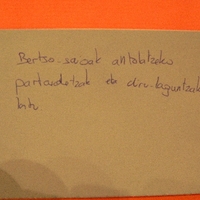 Bertso-saioak antolatzeko
partaidetzak eta diru-laguntzak
bitu